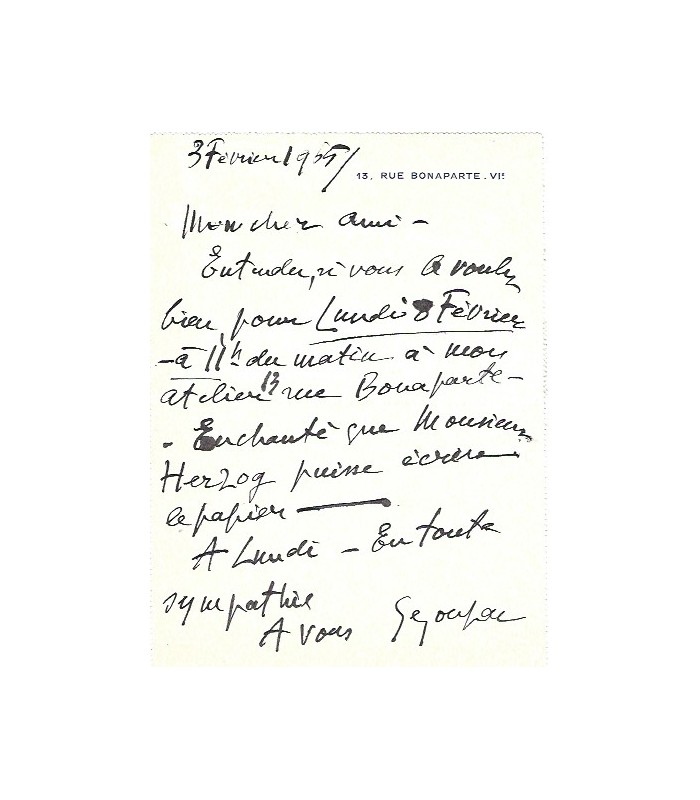 3 Février 1955/
13, RUE BONAPARTE. VIᵉ
Mon cher ami –
Entendu, si vous le voulez
bien, pour Lundi 8 Février
– à 11h du matin à mon
atelier 13 rue Bonaparte –
– Enchanté que Monsieur
Herzog puisse écrire
le papier —
A Lundi – En toute
sympathie
A vous Segonzac